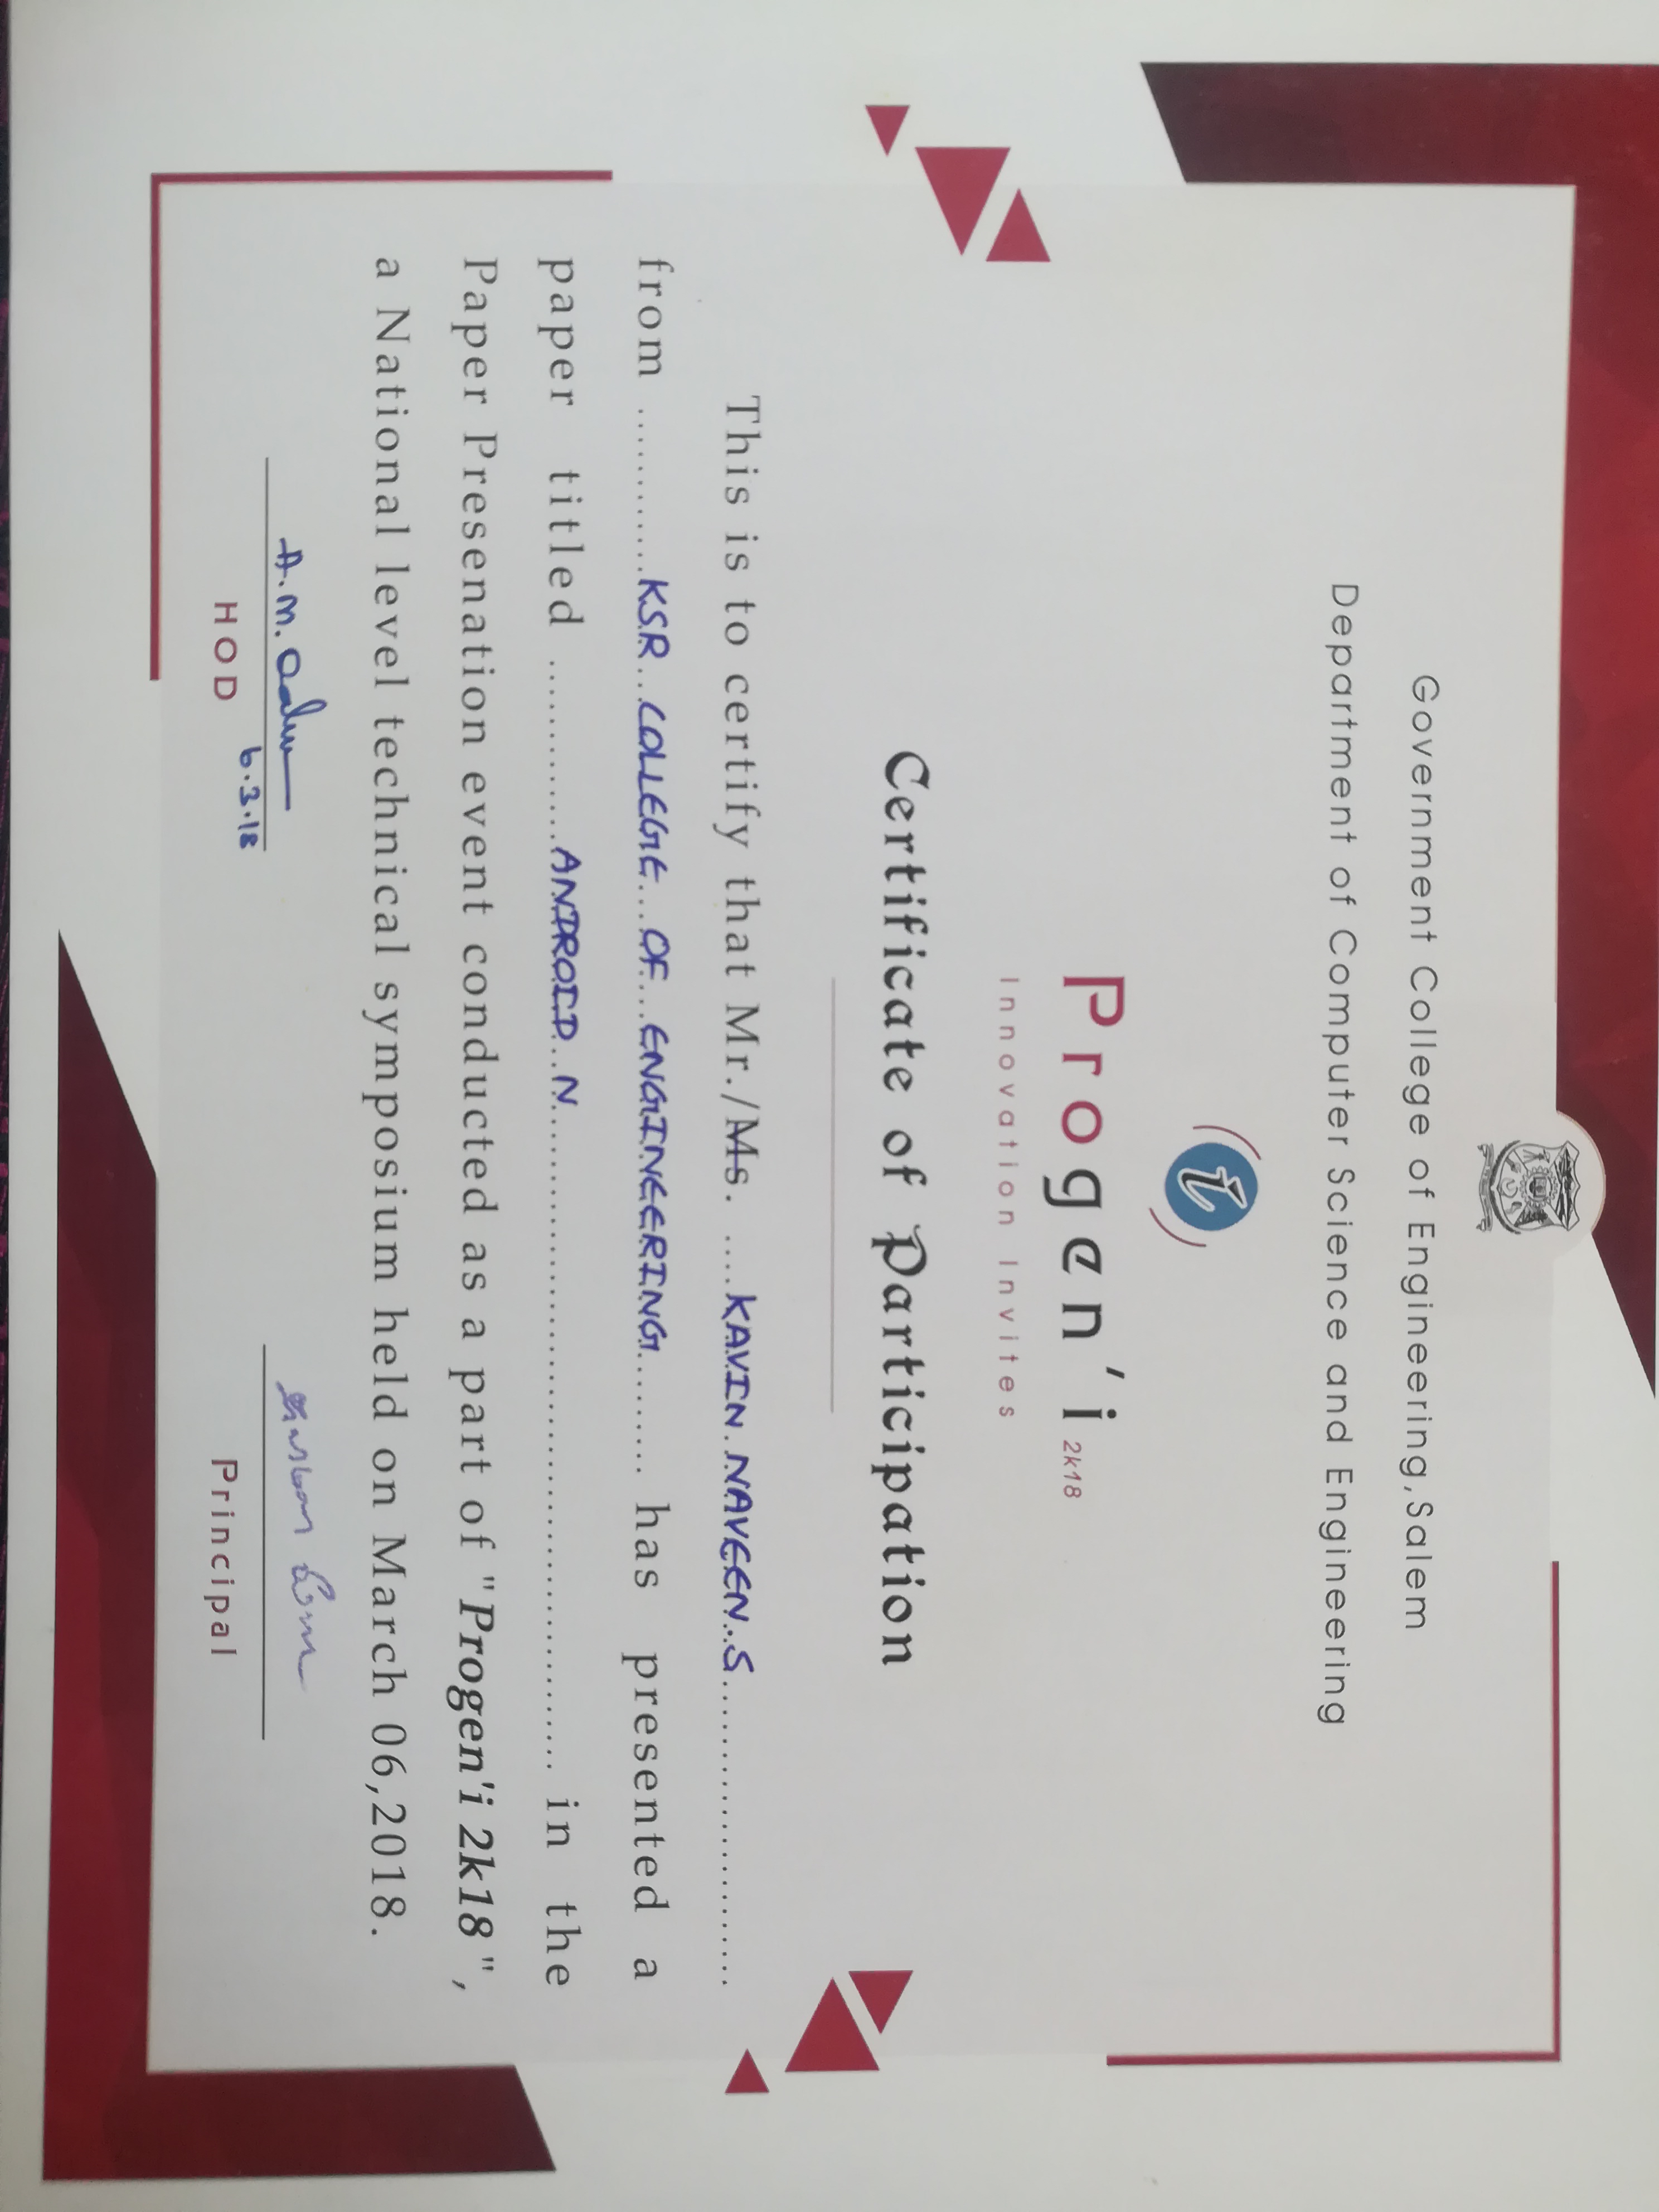 Government College of Engineering,Salem
Department of Computer Science and Engineering
i
Progen'i 2k18
Innovation Invites
Certificate of Participation
This is to certify that Mr./Ms. ....KAVIN NAVEEN.S......................
from ............KSR COLLEGE OF ENGINEERING......... has presented a
paper titled .............ANDROID N.................................................... in the
Paper Presenation event conducted as a part of "Progen'i 2k18 ",
a National level technical symposium held on March 06,2018.
A.M.
6.3.18
HOD
Principal